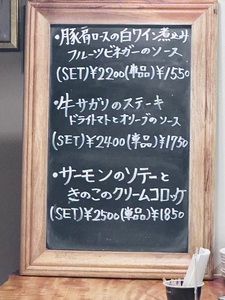 ・豚肩ロースの白ワイン煮込み
フルーツビネガーのソース
(SET)¥2200(単品)¥1550
・牛サガリのステーキ
ドライトマトとオリーブのソース
(SET)¥2400(単品)¥1750
・サーモンのソテーと
きのこのクリームコロッケ
(SET)¥2500(単品)¥1850